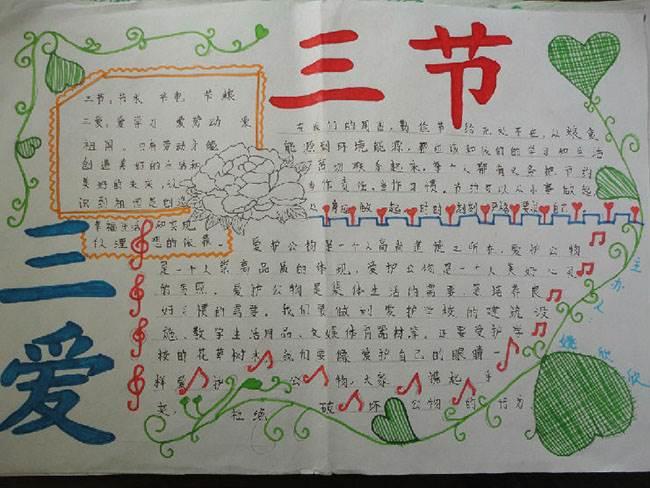 三节
三爱
三节：节水 节电 节粮
三爱：爱学习 爱劳动 爱
祖国。只有劳动才能
创造美好的生活和
美好的未来，认
识到祖国是创造
幸福生活和实现
伙理想的依靠。
在我们的周围，勤俭节给无处不在，从粮食
能源到环境能源，都应该和你们的学习和生活
密切联系起来，每个人都有义务把节约
当作责任，当作习惯。节约可以从小事做起
从身边做起，时时刻刻严格要求自己
爱护公物是一个人高尚道德之所在，爱护公物
是一个人崇高品质的体现，爱护公物是一个人美好心灵
的表照。爱护公物是集体生活的需要，是培养良
好习惯的需要。我们要做到爱护学校的建筑设
施、教学生活用品、文娱体育器材等，还要爱护学
校的花草树木，我们要像爱护自己的眼睛一
样爱护公物，大家携起手
来，杜绝破坏公物的行为
主办人